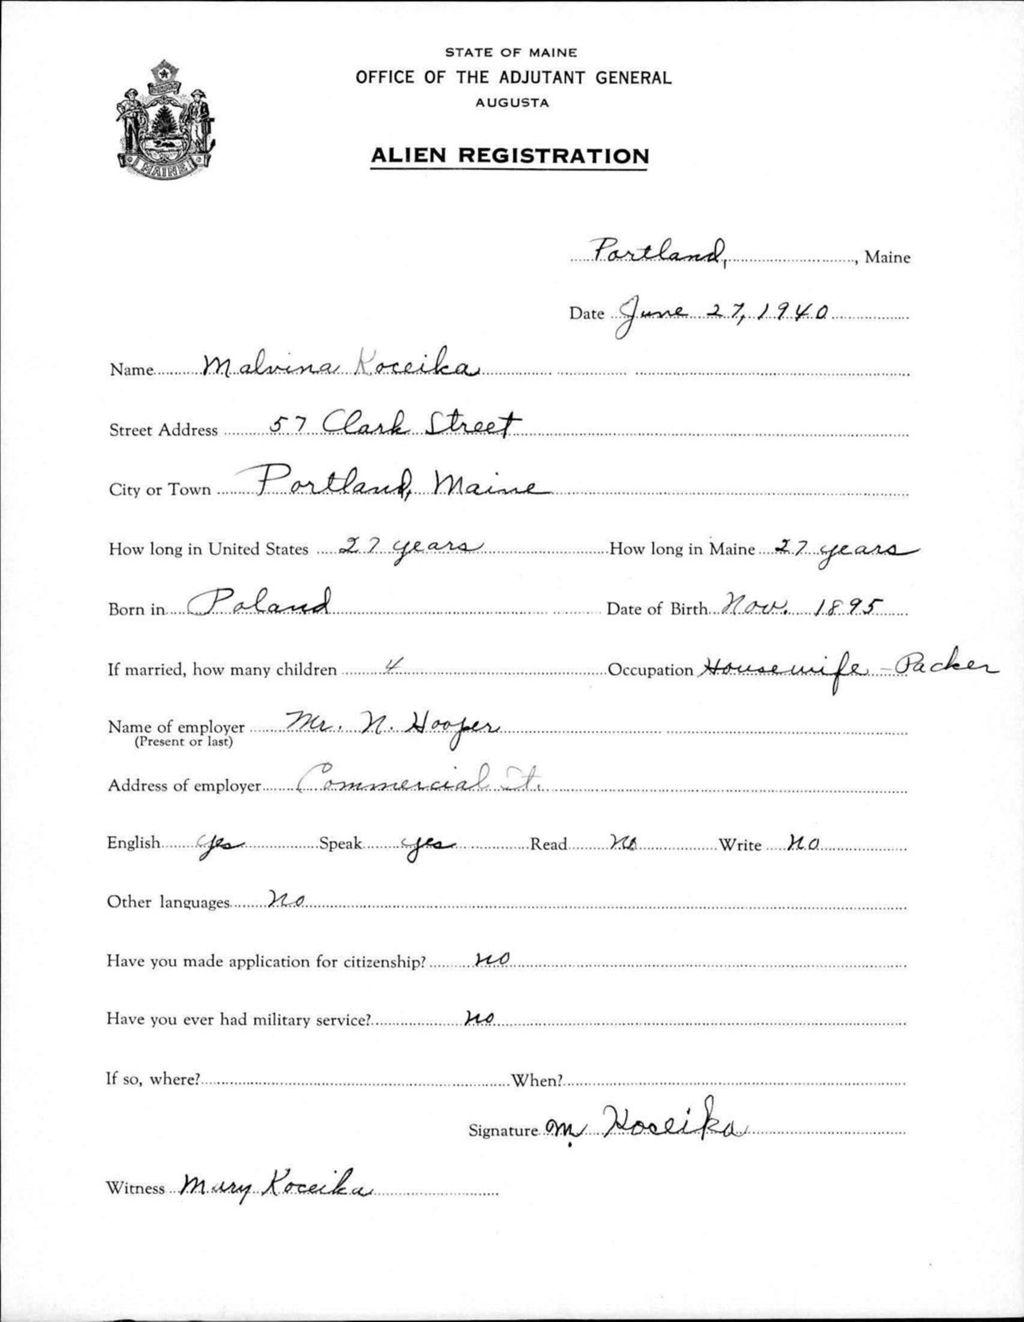 STATE OF MAINE
OFFICE OF THE ADJUTANT GENERAL
AUGUSTA
ALIEN REGISTRATION
MAINE
Portland, , Maine
Date June 27, 1940
Name Malvina Koceika
Street Address 57 Clark Street
City or Town Portland, Maine
How long in United States 27 years How long in Maine 27 years
Born in Poland Date of Birth Nov. 1895
If married, how many children 4 Occupation Housewife - Packer
Name of employer Mr. N. Hooper
(Present or last)
Address of employer Commercial St.
English yes Speak yes Read no Write no
Other languages no
Have you made application for citizenship? no
Have you ever had military service? no
If so, where? When?
Signature M. Koceika
Witness Mary Koceika